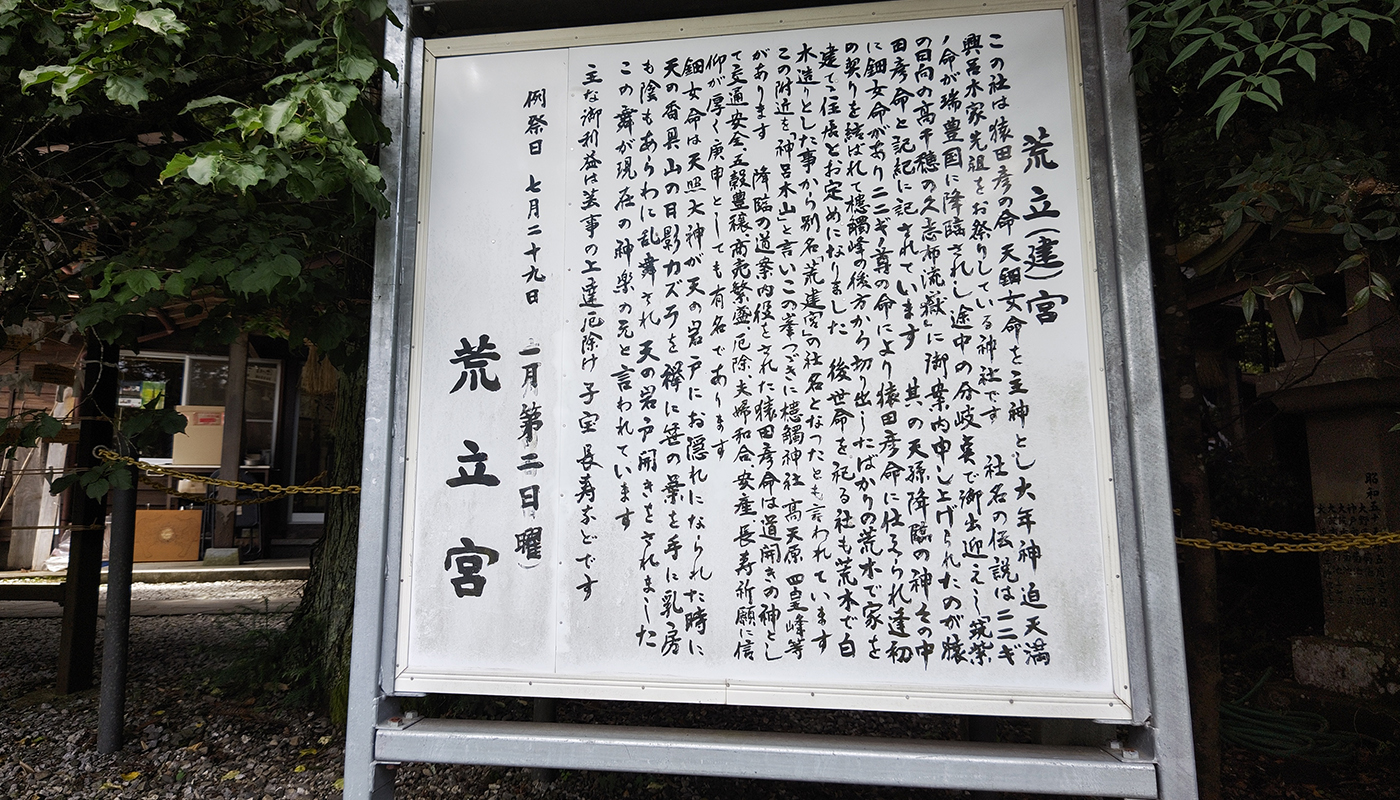 荒立(建)宮
この社は猿田彦の命 天鈿女命を主神とし大年神 迫天満
興呂木家先祖をお祭りしている神社です 社名の伝説はニニギ
ノ命が瑞豊国に降臨されし途中の分岐点で御出迎えし「筑紫
の日向の高千穂の久志布流嶽」に御案内申し上げられたのが猿
田彦命と記紀に記されています 其の天孫降臨の神々の中
に鈿女命があり ニニギノ尊の命により猿田彦命に仕えられ逢初
の契りを結ばれて槵觸峰の後方から切り出したばかりの荒木で家を
建てて住居とお定めになりました 後世命を祀る社も荒木で白
木造りとした事から別名「荒建宮」の社名となったとも言われています
この附近を「神呂木山」と言いこの峯つづきに槵觸神社 高天原 四皇峰等
があります 降臨の道案内役をされた猿田彦命は道開きの神とし
て交通安全 五穀豊穣 商売繁盛 厄除 夫婦和合 安産 長寿祈願に信
仰が厚く庚申としても有名であります
鈿女命は天照大神が天の岩戸にお隠れになられた時に
天の香具山の日影カズラを襷に笹の葉を手に乳房
も陰もあらわに乱舞され 天の岩戸開きをされました
この舞が現在の神楽の元と言われています
主な御利益は芸事の上達 厄除け 子宝 長寿などです
例祭日 七月二十九日
一月第二日曜)
荒立宮